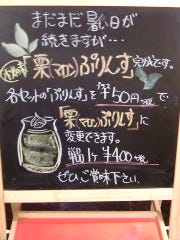 まだまだ暑い日が
続きますが…
栗(マロン)ぷりんす 完成です。
各セットの「ぷりんす」を¥50円で
「栗(マロン)ぷりんす」に
変更できます。
単品1ヶ ¥400
ぜひ、ご賞味下さい。